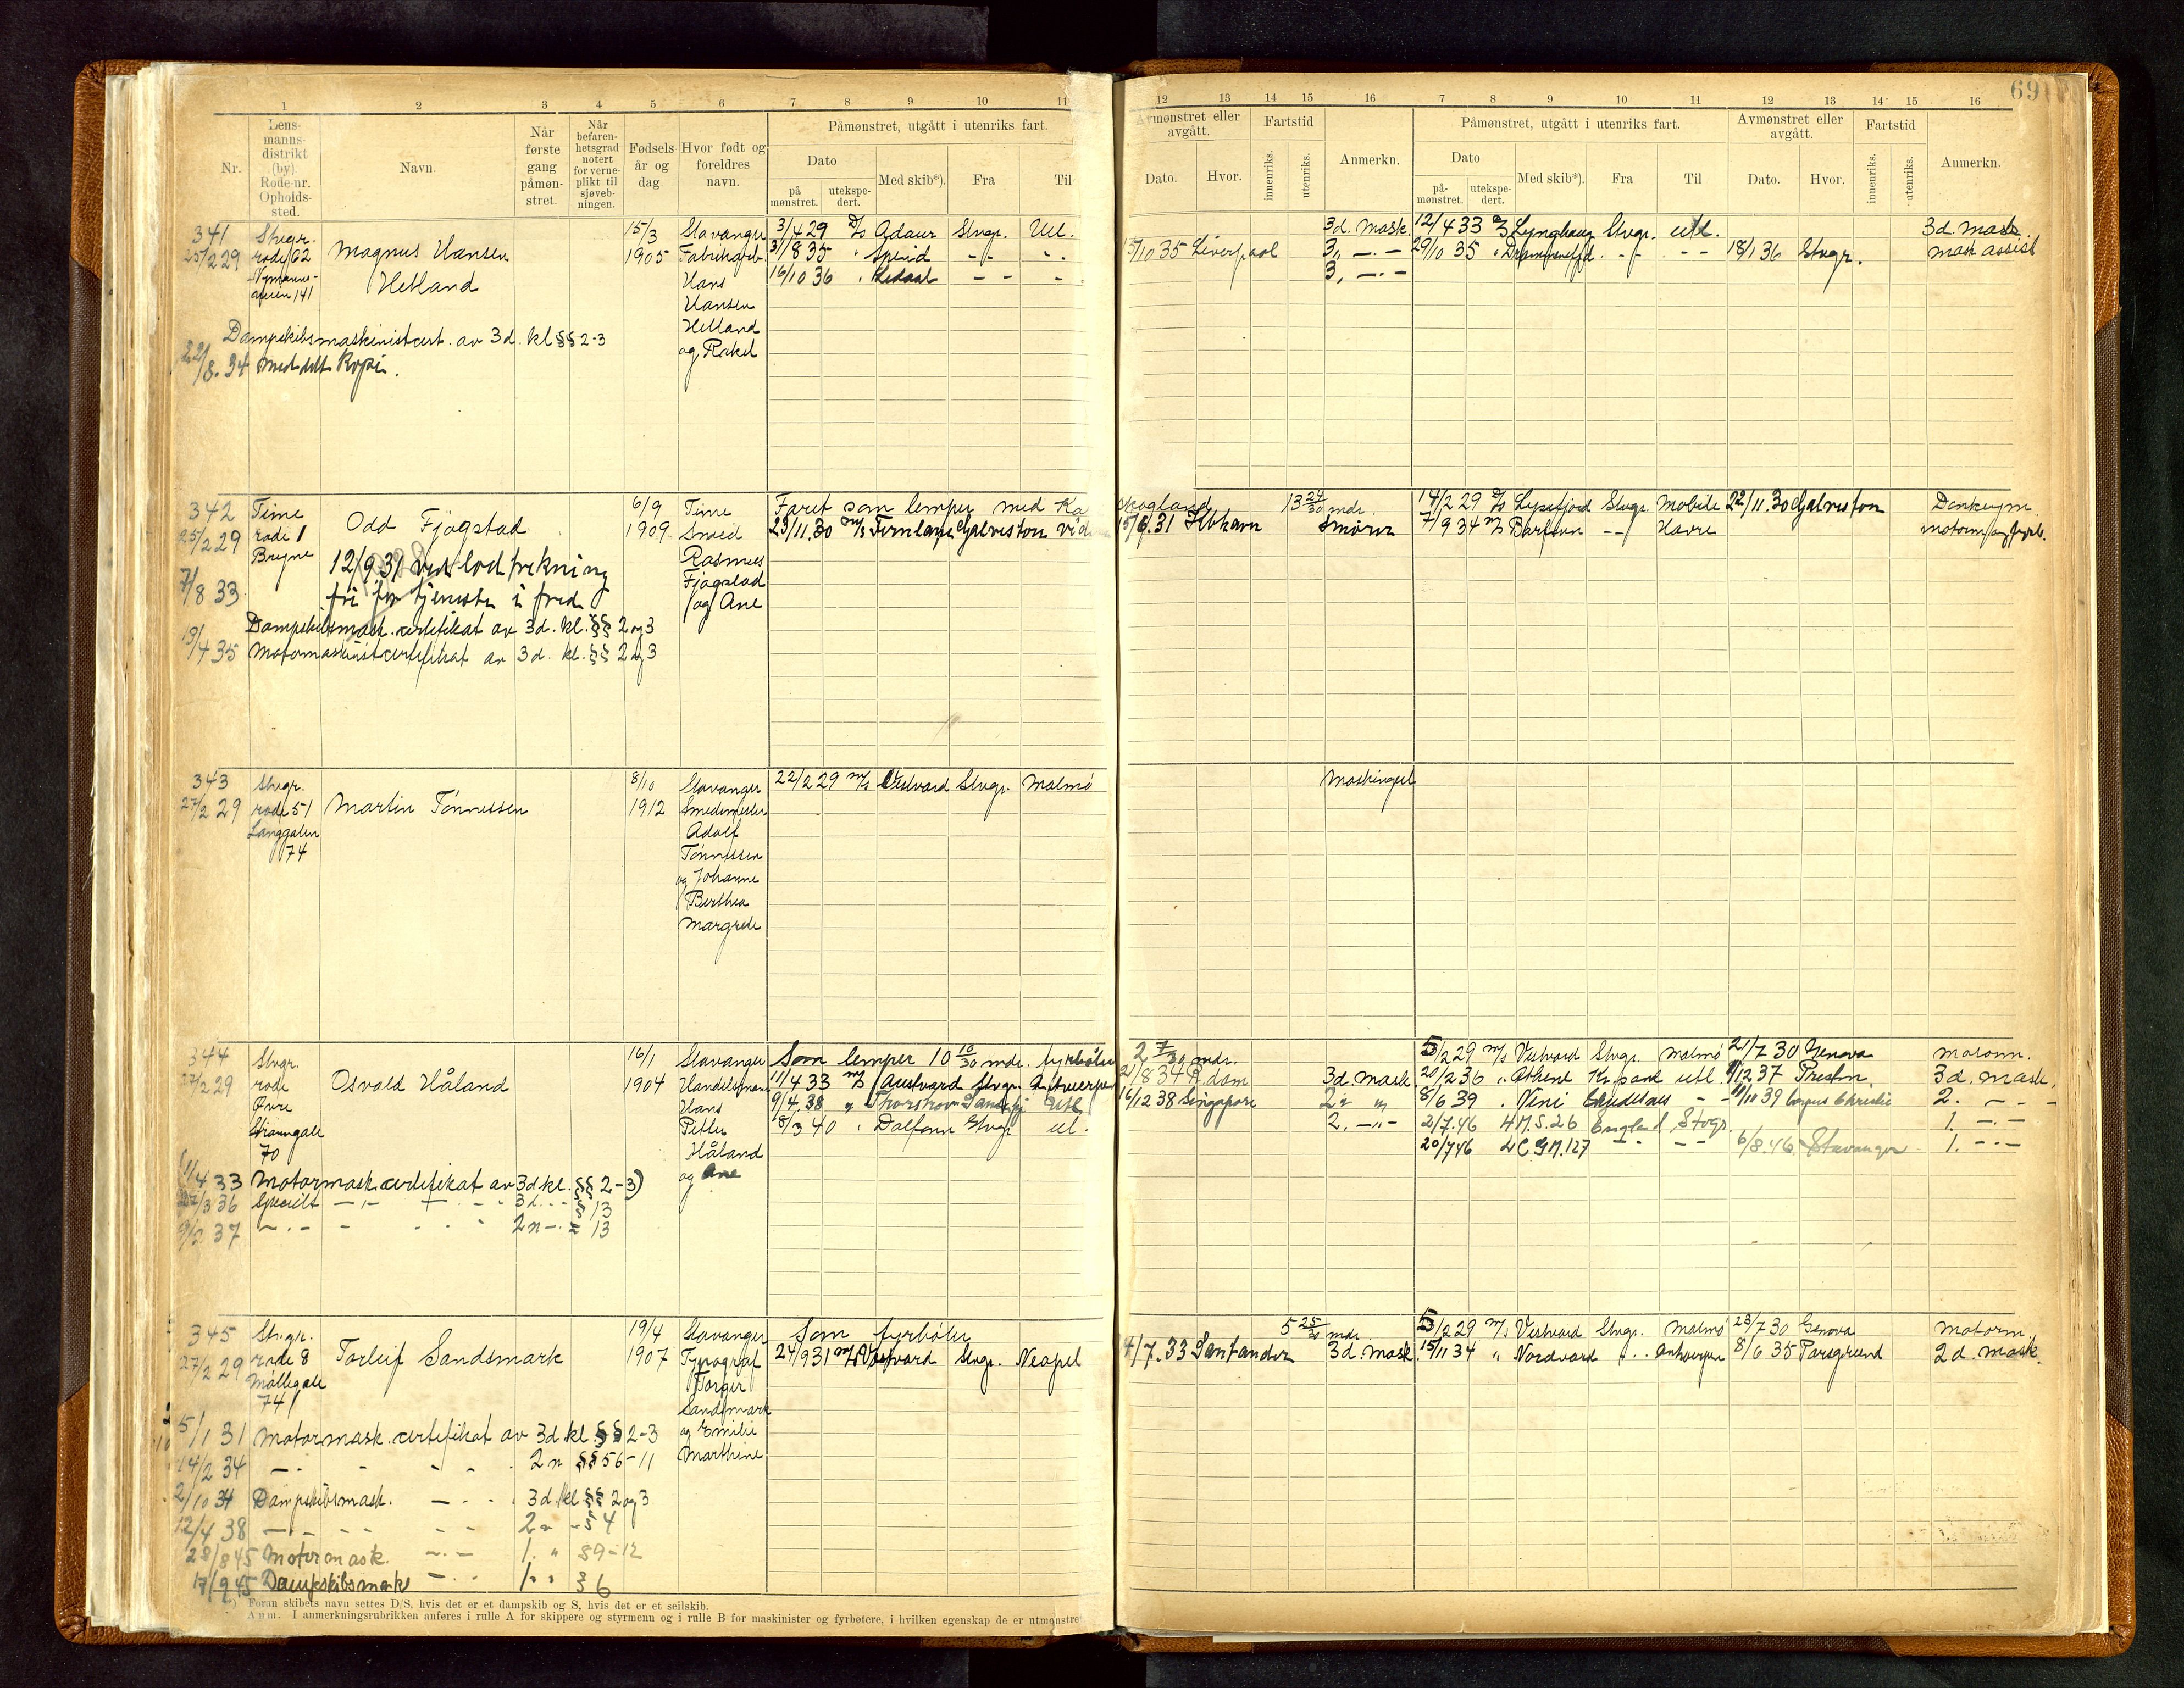 69
1 2 3 4 5 6 7 8 9 10 11 12 13 14 15 16 7 8 9 10 11 12 13 14 15 16
Nr.
Lens-
manns-
distrikt
(by)
Rode-nr.
Opholds-
sted.
Navn.
Når
første
gang
påmøn-
stret.
Når
befaren-
hetsgrad
notert
for verne-
plikt til
sjøveb-
ningen.
Fødsels-
år og
dag
Hvor født og
foreldres
navn.
Påmønstret, utgått i utenriks fart.
Dato
på
mønstret.
utekspe-
dert.
Med skib*).
Fra
Til
Avmønstret eller
avgått.
Dato.
Hvor.
Fartstid
innenriks.
utenriks.
Anmerkn.
Påmønstret, utgått i utenriks fart.
Dato
på-
mønstret.
utekspe-
dert.
Med skib*).
Fra
Til
Avmønstret eller
avgått.
Dato.
Hvor.
Fartstid
innenriks.
utenriks.
Anmerkn.
341
25/2 29
Stvgr.
rode 62
141
Magnus Hansen
Hetland
15/3
1905
Stavanger
Fabrikarb.
Hans
Hansen
Hetland
og Rakel
3/4 29 D/S Adaur Stvgr. Utl.
31/8 35 " Spind - - - -
16/10 36 " Ledaal - - -
5/10 35 Liverpool
3d. mask.
3. — . —
3. — . —
12/4 33 D/S Lynghaug Stvgr. utl.
3d. mask.
29/10 35 " - - - - 18/1 36 Stvgr.
mask assist
Dampskibsmaskinistcert. av 3d. kl §§ 2-3
22/8.34 meddelt Kopi.
342
25/2 29
Time
rode 1
Bryne
Odd Fjogstad
12/9 31 Ved lodtrekning
fri for tjeneste i fred
6/9
1909
Time
Smed
Rasmus
Fjogstad
og Ane
Faret som lemper med
Skogland 13 24/30 mdr.
23/11.30 M/S Fernlane Galveston
15/6.31 Kbhavn Smører
14/2 29 D/S Lysefjord Stvgr. Mobile 22/11.30 Galveston
Donkeym.
7/9 34 M/S - - Havre
motorm og fyrb.
7/8 33
Dampskibsmask. certifikat av 3d. kl. §§ 2 og 3
13/4 35 Motormaskinistcertifikat av 3d. kl. §§ 2 og 3
343
27/2 29
Stvgr.
rode 51
Langgaten
74
Martin Tønnessen
8/10
1912
Stavanger
Smedmester
Adolf
Tønnessen
og Johanne
Berthea
Margrete
22/2 29 M/S Vestvard Stvgr. Malmø
Maskingut
344
27/2 29
Stvgr.
rode
Øvre
Strandgate
70
Osvald Håland
16/1
1904
Stavanger
Handelsmann
Hans
Petter
Håland
og Ane
Som lemper 10 10/30 mdr. fyrbøter
2 7/30 mdr.
11/4 33 M/S Austvard Stvgr. Antwerpen
21/8 34 R.dam 3d. mask.
9/4.38 " Thorshov Sandefj Utl.
16/12 38 Singapore 2. " "
18/3 40 " Dalfonn Stvgr utl.
2. — " —
5/2 29 M/S Vestvard Stvgr. Malmø 21/7 30 Genova motorm.
20/2 36 " Athene Kr.sand utl. 12 37 Preston. 3d. mask.
8/6 39 " Vini - - 11/11 39 Corpus Christie 2. - - -
2/7.46 H.M.S. 26 England Stvgr. 1. — . —
20/7 46 L C G M. 127 - - - - 6/8.46 Stavanger 1. - - -
(1/4 33 Motormask. certifikat av 3d kl. §§ 2-3)
27/3 36 Specielt — . — 3d. . . § 13
37 — . — 2n — . — 13
345
27/2 29
Stvgr.
rode 8
Møllegate
74
Torleif Sandsmark
19/4
1907
Stavanger
Typograf
Torger
Sandsmark
og Emilie
Marthine
Som fyrbøter
5 25/30 mdr.
24/9 31 M/S Vestvard Stvgr. Neapel
4/7.33 Santander 3d. mask.
5/2 29 M/S Vestvard Stvgr. Malmø 23/7 30 Genova motorm.
15/11 34 " Nordvard - . . Antwerpen 8/6 35 Porsgrund 2d. mask.
5/1 31 Motormask. certifikat av 3d. kl §§ 2-3
14/2 34 — . - - - . 2n §§ 56-11
2/10 34 Dampskibsmask. — - . . 3d. kl §§ 2 og 3
12/4 38 — - - - - - 2n - § 4
28/8 45 Motormask. — . — 1. " §9-12
17/9 45 Dampskibsmask — . . 1. " § 6
*) Foran skibets navn settes D/S, hvis det er et dampskib og S, hvis det er et seilskib.
Anm. I anmerkningsrubrikken anføres i rulle A for skippere og styrmenn og i rulle B for maskinister og fyrbøtere, i hvilken egenskap de er utmønstre